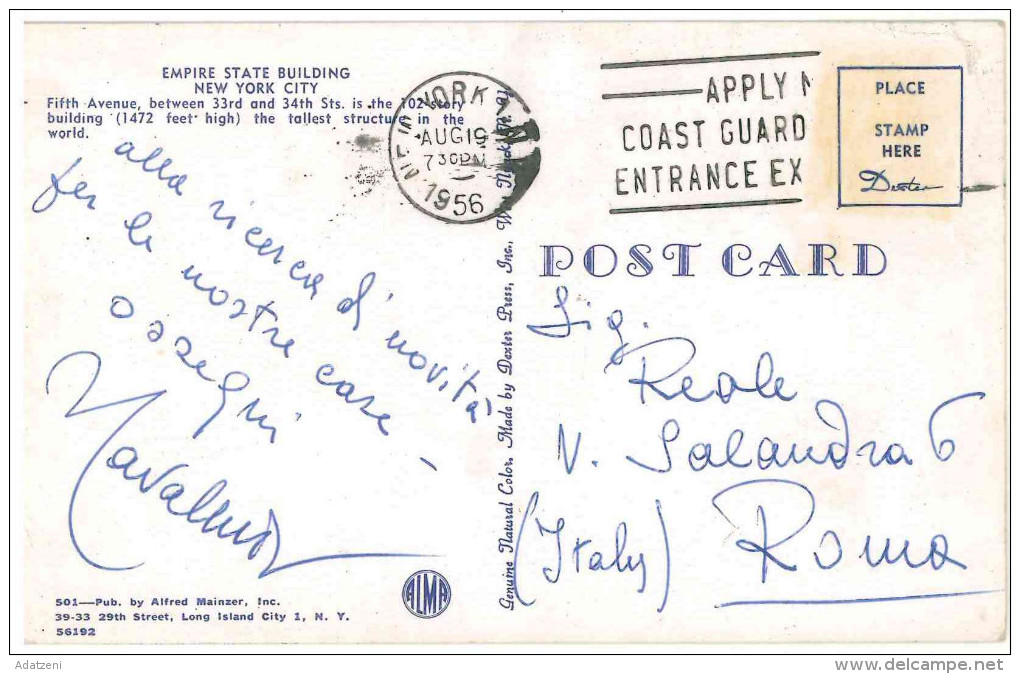 EMPIRE STATE BUILDING
NEW YORK CITY
Fifth Avenue, between 33rd and 34th Sts. is the 102-story
building (1472 feet high) the tallest structure in the
world.
alla ricerca di novità
per le nostre case
ossequi
NEW YORK
AUG 19
7 30 PM
1956
APPLY N
COAST GUARD
ENTRANCE EX
PLACE
STAMP
HERE
Dexter
POST CARD
Genuine Natural Color. Made by Dexter Press, Inc., West Nyack, N. Y.
Sig.
Reale
V. Salandra 6
(Italy) Roma
501—Pub. by Alfred Mainzer, Inc.
39-33 29th Street, Long Island City 1, N. Y.
56192
ALMA
Adatzeni
www.delcampe.net